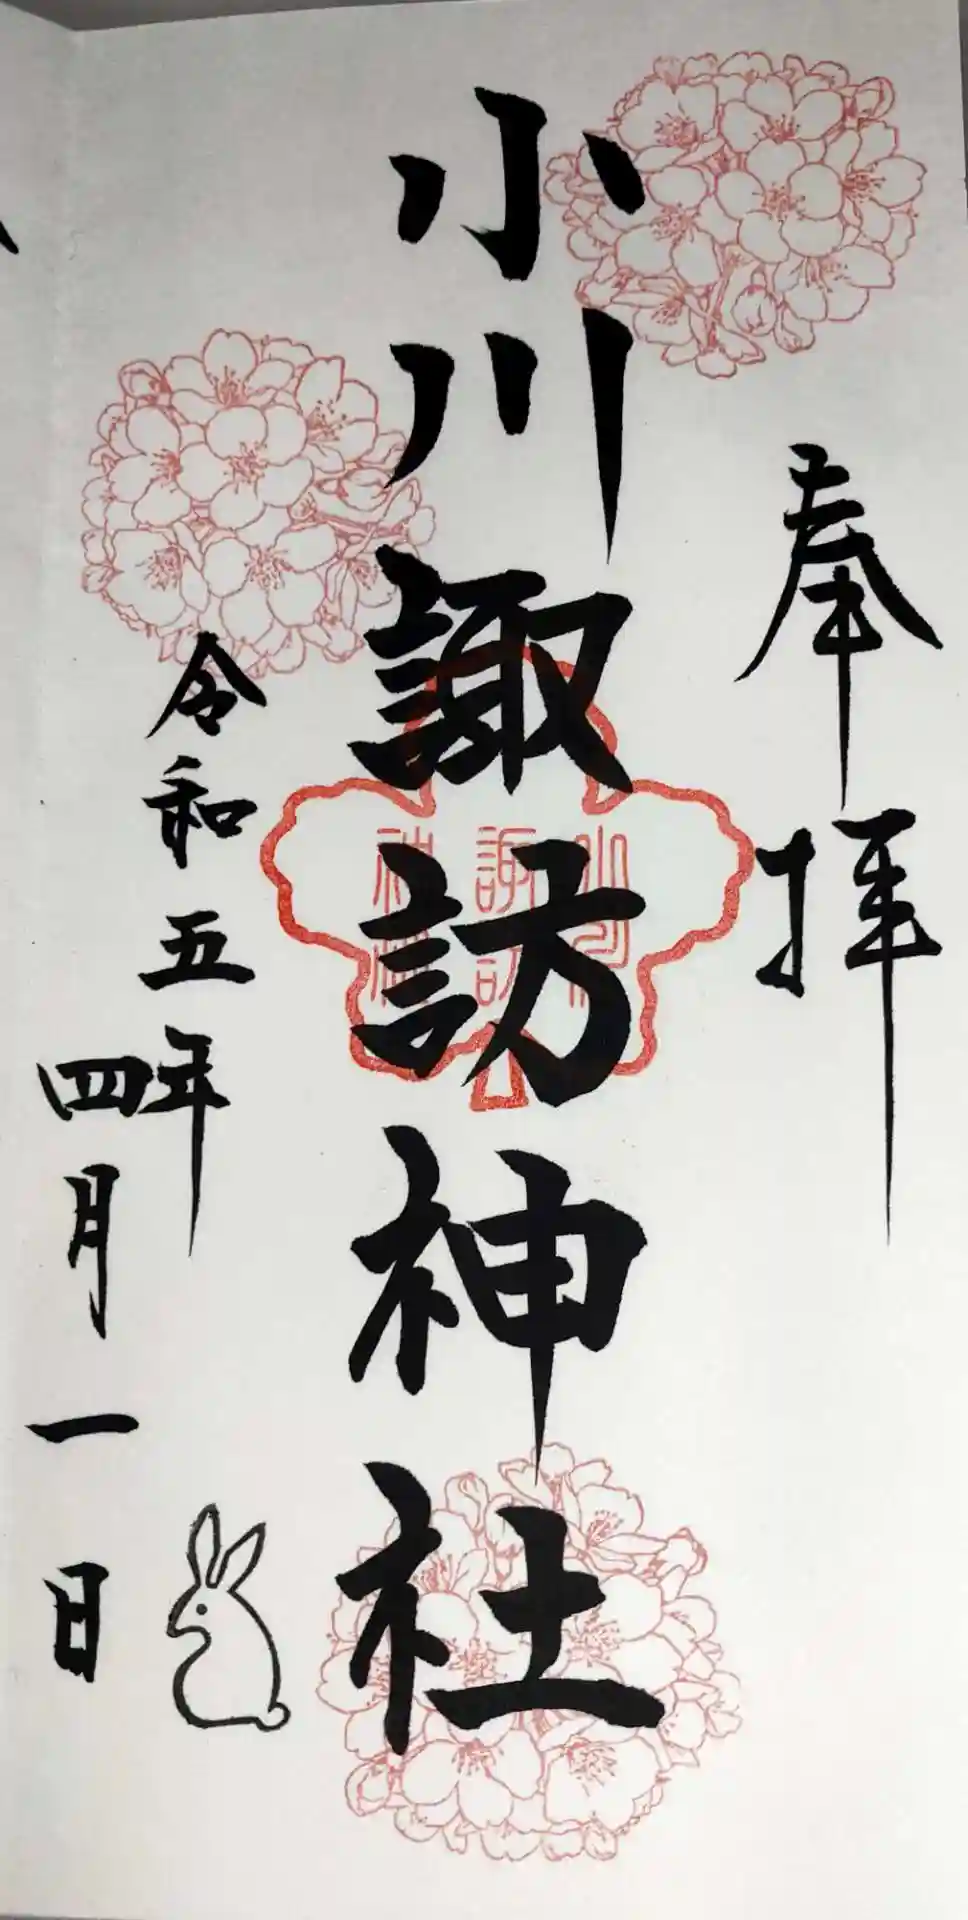 奉拝
小川諏訪神社
小川
諏訪
神社
令和五年
四月一日